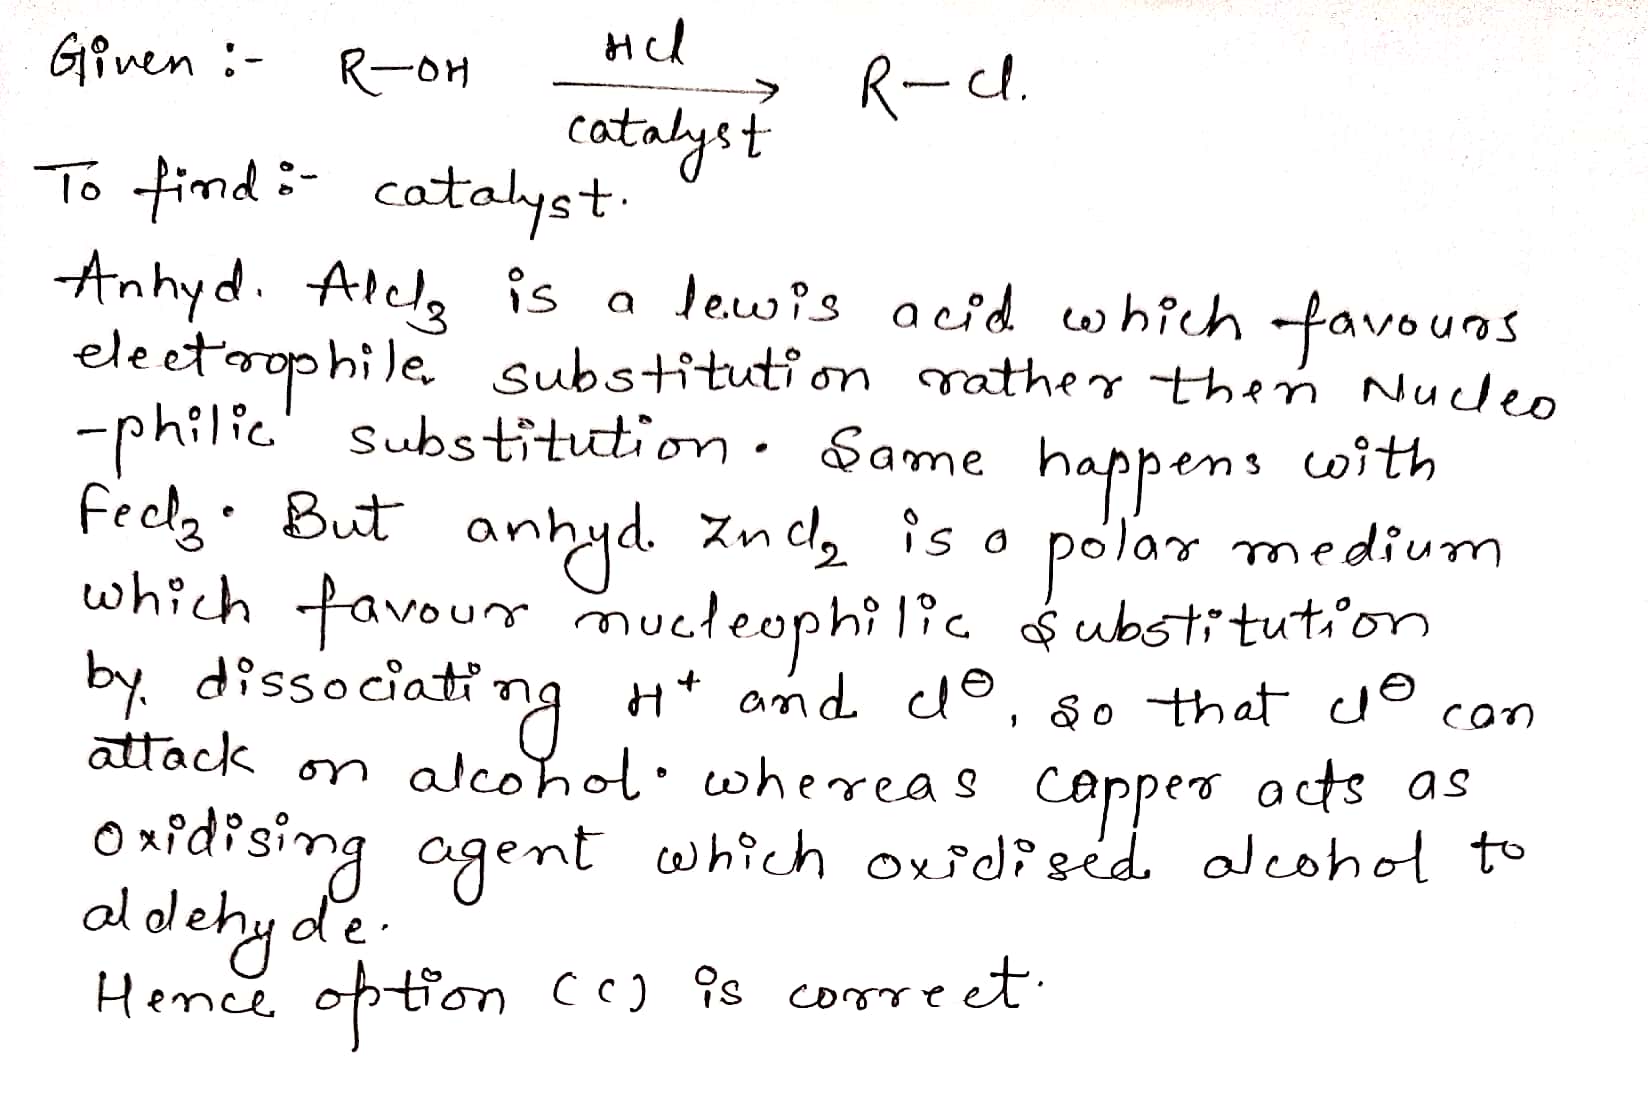 Given :- R-OH HCl R-Cl.
catalyst
To find :- catalyst.
Anhyd. AlCl3 is a lewis acid which favours
electrophile substitution rather then Nucleo
-philic substitution. Same happens with
FeCl3. But anhyd. ZnCl2 is a polar medium
which favour nucleophilic substitution
by dissociating H+ and Cl⊖, so that Cl⊖ can
attack on alcohol. whereas copper acts as
oxidising agent which oxidised alcohol to
aldehyde.
Hence option (c) is correct.